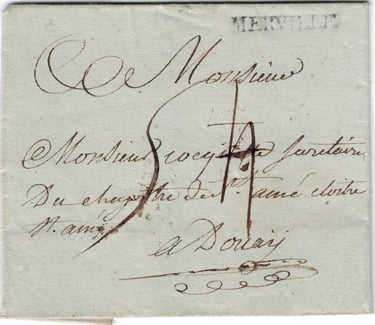 MERVILLE
Monsieur
Monsieur secretaire
Du chapitre de St amé cloitre
St. amé
a Douay